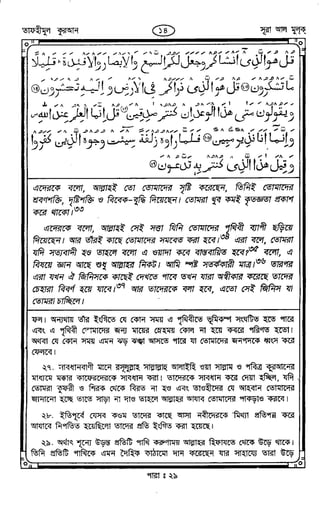 তাফহীমুল কুরআন
১৪
সূরা আল মুলক্
قُلْ هُوَ الَّذِي أَنْشَأَكُمْ وَجَعَلَ لَكُمُ السَّمْعَ وَالْأَبْصَارَ وَالْأَفْئِدَةَ قَلِيلًا
مَا تَشْكُرُونَ ۝ قُلْ هُوَ الَّذِي ذَرَأَكُمْ فِي الْأَرْضِ وَإِلَيْهِ تُحْشَرُونَ ۝
وَيَقُولُونَ مَتَى هَذَا الْوَعْدُ إِنْ كُنْتُمْ صَادِقِينَ ۝ قُلْ إِنَّمَا الْعِلْمُ عِنْدَ اللَّهِ
وَإِنَّمَا أَنَا نَذِيرٌ مُبِينٌ ۝ فَلَمَّا رَأَوْهُ زُلْفَةً سِيئَتْ وُجُوهُ الَّذِينَ كَفَرُوا
وَقِيلَ هَذَا الَّذِي كُنْتُمْ بِهِ تَدَّعُونَ ۝
এদেরকে বলো, আল্লাহই তো তোমাদের সৃষ্টি করেছেন, তিনিই তোমাদের
শ্রবণশক্তি, দৃষ্টিশক্তি ও বিবেক-বুদ্ধি দিয়েছেন। তোমরা খুব কমই কৃতজ্ঞতা প্রকাশ
করে থাকো।৩৩
এদেরকে বলো, আল্লাহই সেই সত্তা যিনি তোমাদের পৃথিবী ব্যাপী ছড়িয়ে
দিয়েছেন। আর তাঁরই কাছে তোমাদের সমবেত করা হবে।৩৪ এরা বলে, তোমরা
যদি সত্যবাদী হও তাহলে বলো এ ওয়াদা কবে বাস্তবায়িত হবে?৩৫ বলো, এ
বিষয়ে জ্ঞান আছে শুধু আল্লাহর নিকট। আমি স্পষ্ট সতর্ককারী মাত্র।৩৬ তারপর
এরা যখন ঐ জিনিসকে কাছেই দেখতে পাবে তখন যারা অস্বীকার করেছে তাদের
চেহারা বিবর্ণ হয়ে যাবে।৩৭ আর তাদেরকে বলা হবে, এতো সেই জিনিস যা
তোমরা চাচ্ছিলে।
ফল। অন্যথায় তাঁর ইংগিতে যে কোন সময় এ পৃথিবীতে ভূমিকম্প সংঘটিত হতে পারে
এবং এ পৃথিবী তোমাদের জন্য মায়ের কোলের মত না হয়ে কবরে পরিণত হতো।
অথবা যে কোন সময় এমন ঝড় ঝঞ্ঝা আসতে পারে যা তোমাদের জনপদকে ধ্বংস করে
ফেলবে।
২৮. ইতিপূর্বে যেসব কওম তাদের কাছে আসা নবীদেরকে মিথ্যা প্রতিপন্ন করে
আযাবে নিপতিত হয়েছিলো তাদের প্রতি ইংগিত করা হয়েছে।
২৯. অর্থাৎ শূন্যে উড়ন্ত প্রতিটি পাখি করুণাময় আল্লাহর হিফাযতে থেকে উড়ে থাকে।
তিনি প্রতিটি পাখিকে এমন দৈহিক কাঠামো দান করেছেন যার সাহায্যে তারা উড়ে
পারা ঃ ২৯